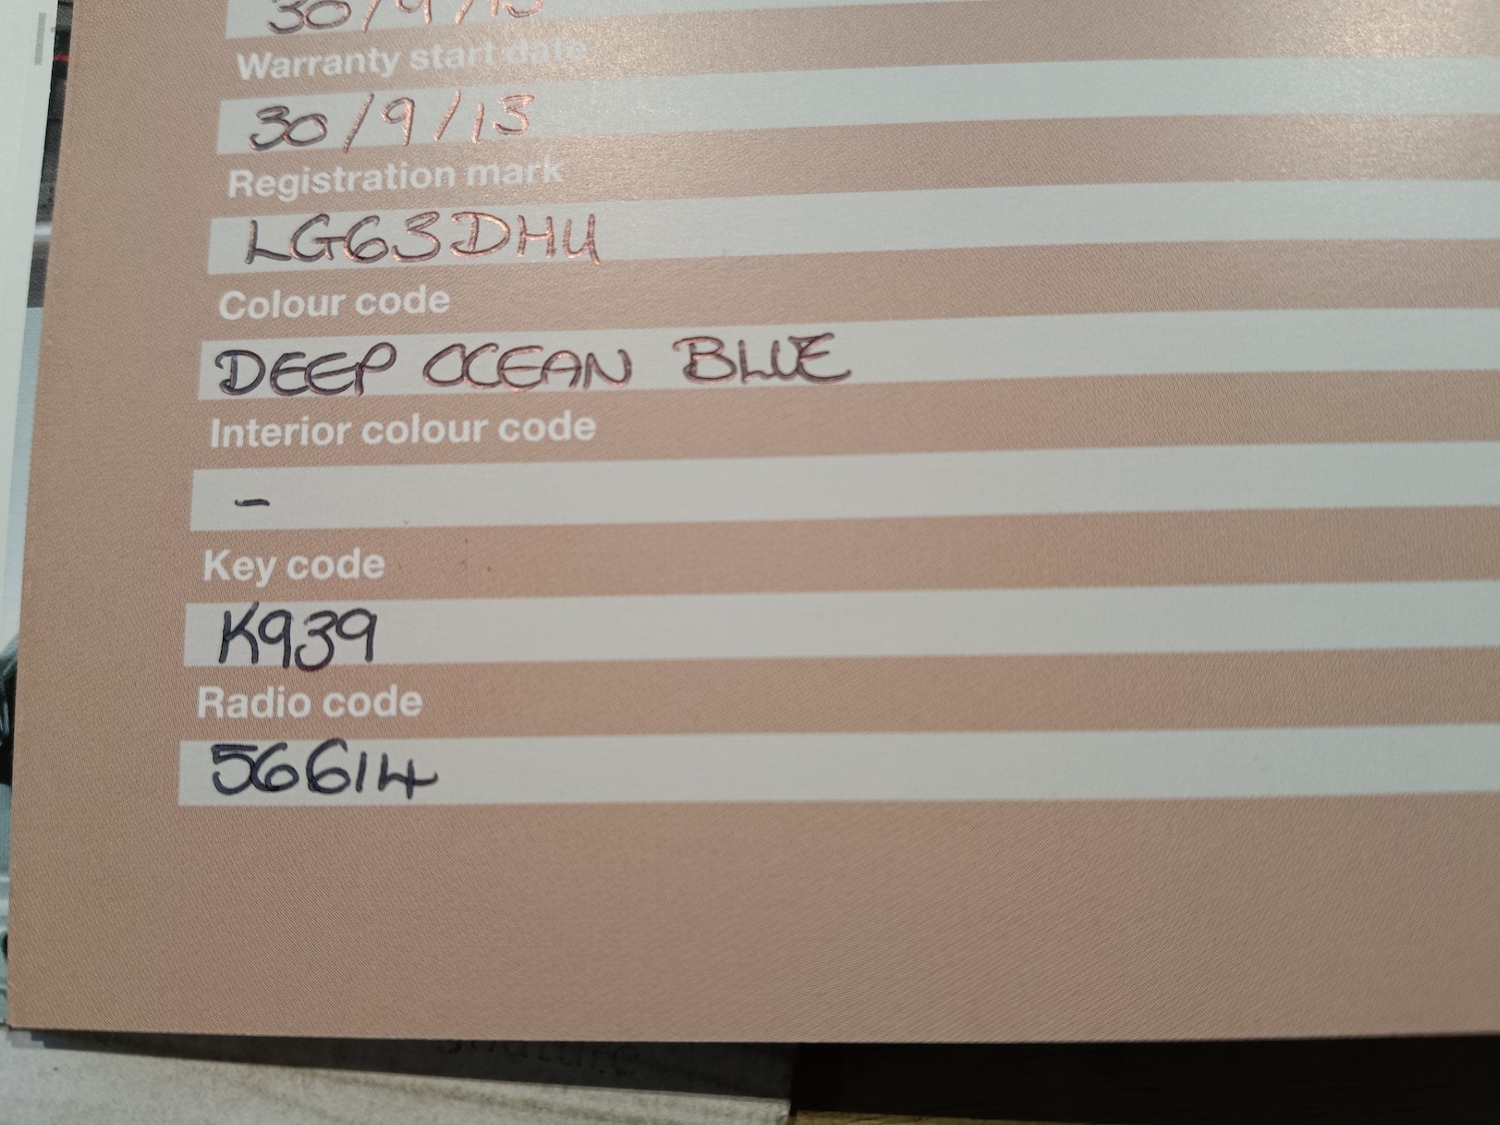 30/9/13
Warranty start date
30/9/13
Registration mark
LG63DHU
Colour code
DEEP OCEAN BLUE
Interior colour code
-
Key code
K939
Radio code
56614